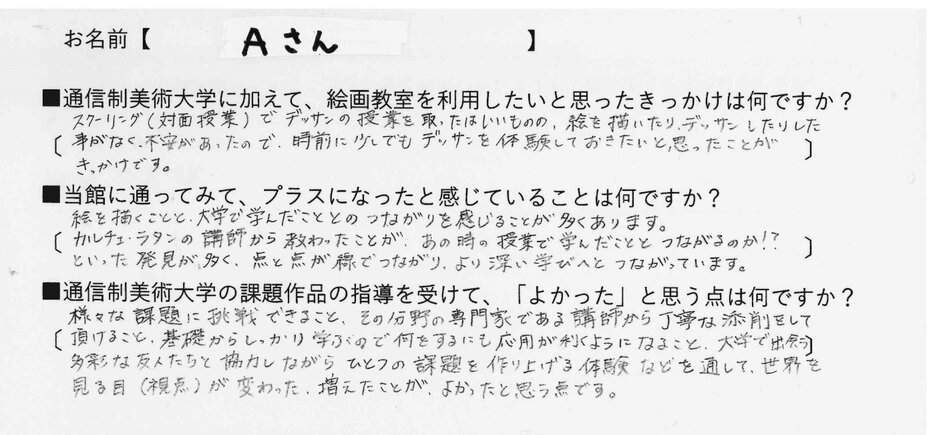 お名前【 Aさん 】
■通信制美術大学に加えて、絵画教室を利用したいと思ったきっかけは何ですか?
スクーリング(対面授業)でデッサンの授業を取ったはいいものの、絵を描いたりデッサンしたりした
事がなく、不安があったので、時前に少しでもデッサンを体験しておきたいと思ったことが
きっかけです。
■当館に通ってみて、プラスになったと感じていることは何ですか?
絵を描くことと、大学で学んだこととのつながりを感じることが多くあります。
カルチェ・ラタンの講師から教わったことが、あの時の授業で学んだこととつながるのか!?
といった発見が多く、点と点が線でつながり、より深い学びへとつながっています。
■通信制美術大学の課題作品の指導を受けて、「よかった」と思う点は何ですか?
様々な課題に挑戦できること、その分野の専門家である講師から丁寧な添削をして
頂けること、基礎からしっかり学ぶので何をするにも応用が利くようになること、大学で出会う
多彩な友人たちと協力しながらひとつの課題を作り上げる体験などを通して、世界を
見る目(視点)が変わった、増えたことが、よかったと思う点です。